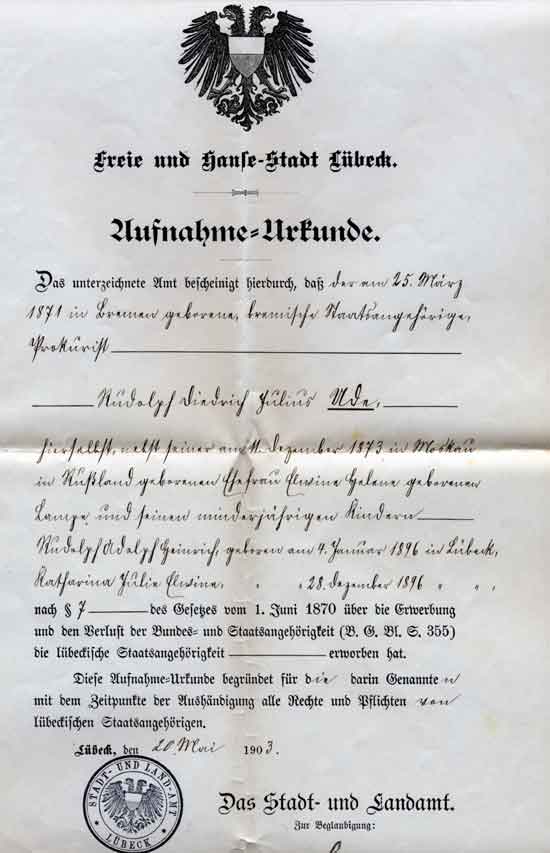 Freie und Hanse-Stadt Lübeck.
Aufnahme-Urkunde.
Das unterzeichnete Amt bescheinigt hierdurch, daß der am 25. März
1871 in Bremen geborene, bremische Staatsangehörige,
Prokurist
Rudolph Diedrich Julius Ude,
hierselbst, nebst seiner am 11. Dezember 1873 in Moskau
in Rußland geborenen Ehefrau Elwine Helene geborenen
Lampe und seinen minderjährigen Kindern
Rudolph Adolph Heinrich, geboren am 4. Januar 1896 in Lübeck,
Katharina Julie Elwine, " " 28. Dezember 1896 " " ,
nach § 7 des Gesetzes vom 1. Juni 1870 über die Erwerbung
und den Verlust der Bundes- und Staatsangehörigkeit (B. G. Bl. S. 355)
die lübeckische Staatsangehörigkeit erworben hat.
Diese Aufnahme-Urkunde begründet für die darin Genannten
mit dem Zeitpunkte der Aushändigung alle Rechte und Pflichten von
lübeckischen Staatsangehörigen.
Lübeck, den 20. Mai 1903.
STADT- UND LAND-AMT
LÜBECK
Das Stadt- und Landamt.
Zur Beglaubigung: